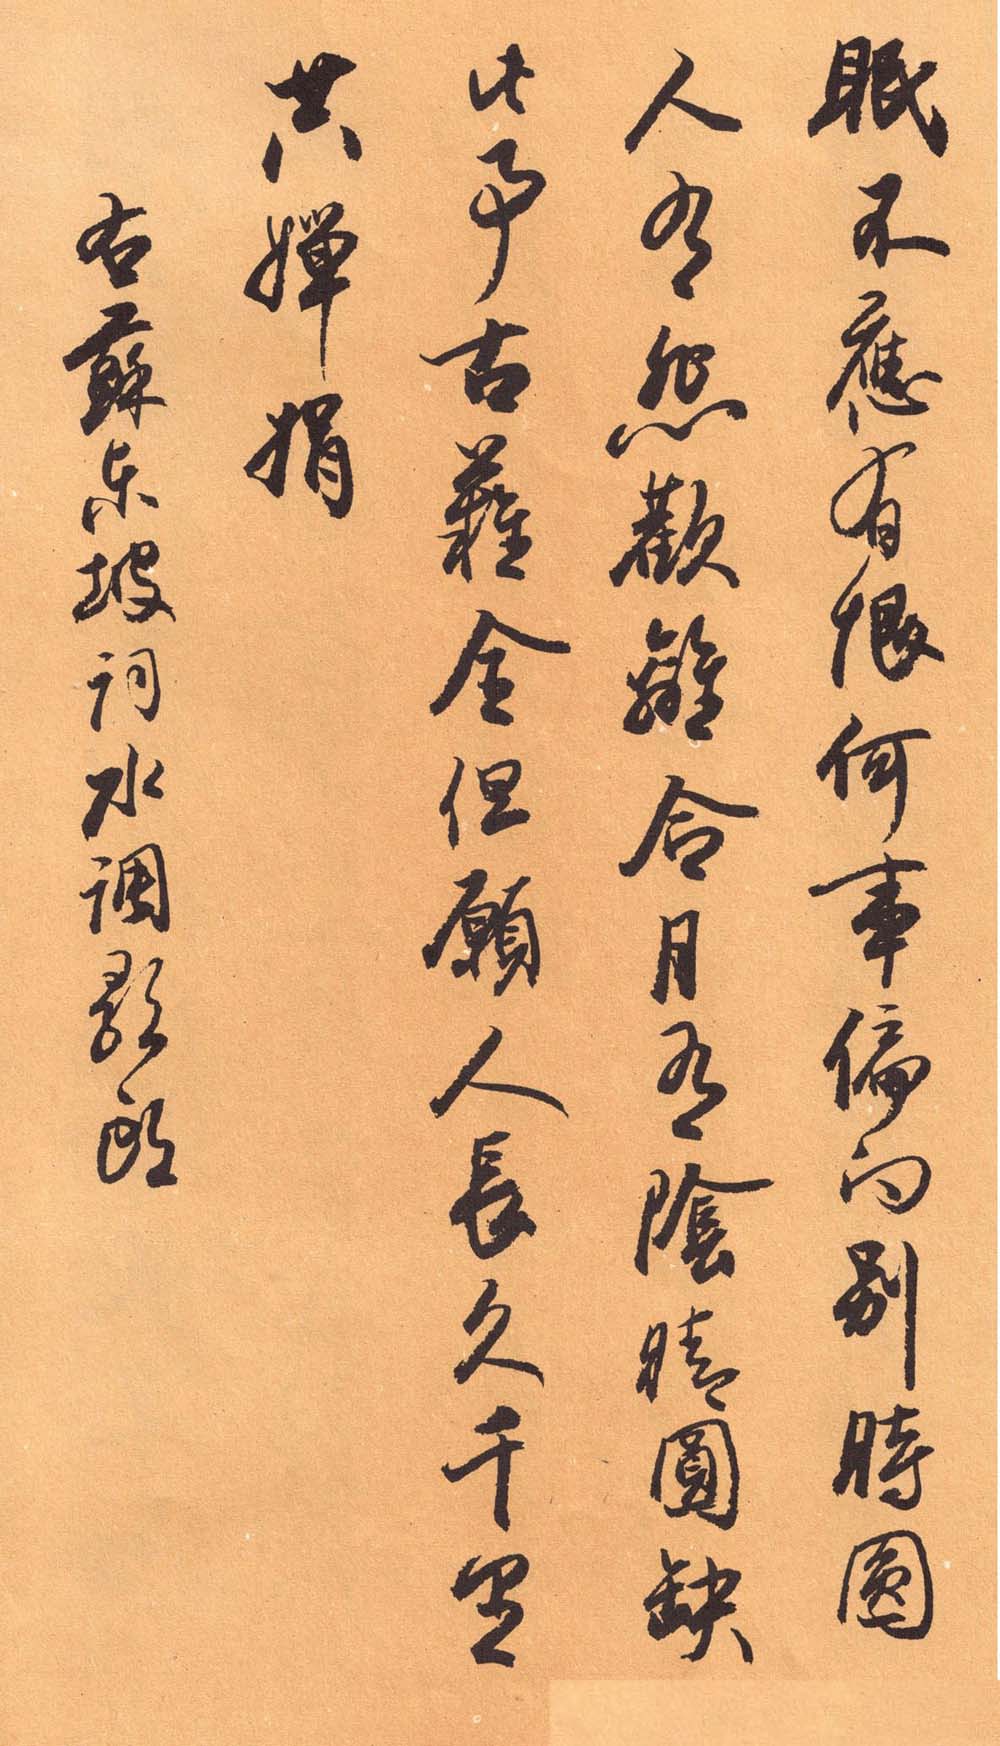 眠不應有恨何事偏向別時圓
人有怨歡離合月有陰晴圓缺
此事古難全但願人長久千里
共嬋娟
右蘇東坡詞水調歌頭